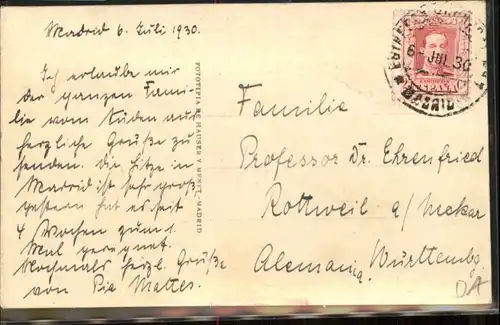 Madrid 6. Juli 1930.
Ich erlaube mir
der ganzen Fami-
lie vom Süden aus
herzliche Grüße zu
senden. Die Hitze in
Madrid ist sehr groß
gestern hat es seit
4 Wochen zum 1.
Mal geregnet.
Nochmals herzl. Grüße
von Pia Mattes.
FOTOTIPIA DE HAUSER Y MENET.-MADRID
6 JUL 30
MADRID
ESPAÑA
Familie
Professor Dr. Ehrenfried
Rottweil a/Neckar
Alemania, Württemberg